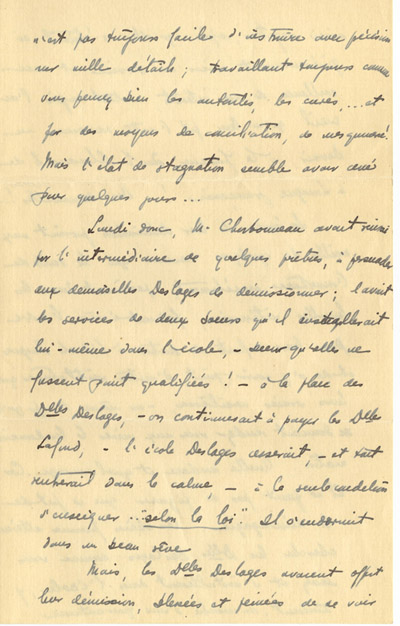 n'est pas toujours facile d'instruire avec précision
sur mille détails ; travaillant toujours comme
vous pensez bien les autorités, les curés, ... et
par des moyens de conciliation, de mesquinerie.
Mais l'état de stagnation semble avoir cessé
pour quelques jours ...
Lundi donc, M. Charbonneau avait réussi
par l'intermédiaire de quelques prêtres, à persuader
aux demoiselles Deslages de démissionner ; l'avait
les services de deux soeurs qu'il installerait
lui-même dans l'école, - bien qu'elles ne
fussent point qualifiées ! - à la place des
Delles Deslages, - on continuerait à payer les Delles
Lafond, - l'école Deslages cesserait, - et tout
rentrerait dans le calme, - à la seule condition
d'enseigner ... "selon la loi". Il s'endormit
dans un beau rêve
Mais, les Delles Deslages avaient offert
leur démission, blessées et peinées de se voir